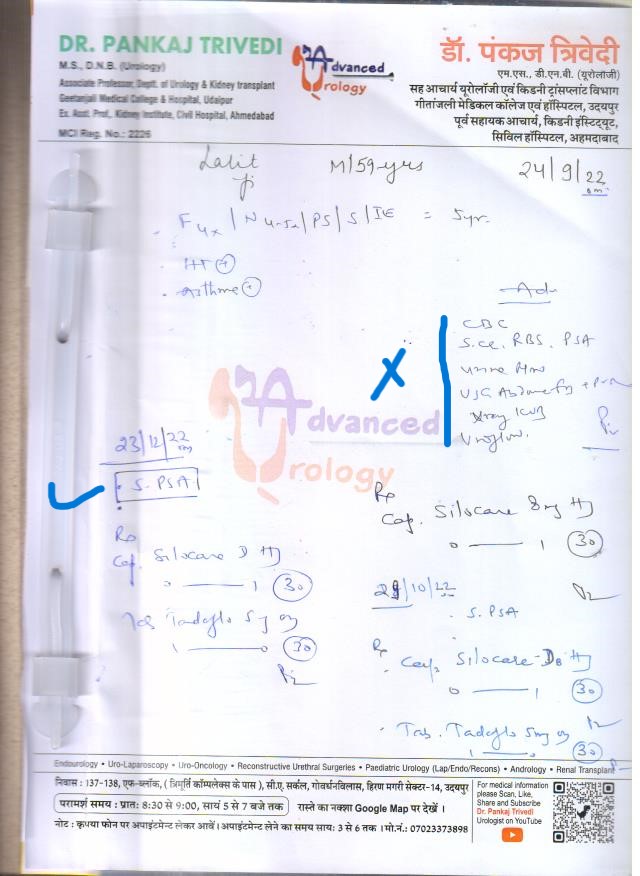 DR. PANKAJ TRIVEDI
M.S., D.N.B. (Urology)
Associate Professor, Deptt. of Urology & Kidney transplant
Geetanjali Medical College & Hospital, Udaipur
Ex. Asst. Prof., Kidney Institute, Civil Hospital, Ahmedabad
MCI Reg. No.: 2226
Advanced
Urology
डॉ. पंकज त्रिवेदी
एम.एस., डी.एन.बी. (यूरोलॉजी)
सह आचार्य यूरोलॉजी एवं किडनी ट्रांसप्लांट विभाग
गीतांजली मेडिकल कॉलेज एवं हॉस्पिटल, उदयपुर
पूर्व सहायक आचार्य, किडनी इंस्टिट्यूट,
सिविल हॉस्पिटल, अहमदाबाद
Lalit ji M/59-yrs 24/9/22
= 5yr.
HT +
Asthma +
Adv
CBC
S.Cr. RBS. PSA
Urine
USG Abdomen
Xray KUB
Uroflow.
Advanced
Urology
Rp
Cap. Silocare 8mg
0 — 1 30
/10/22
S. PSA
Rp
Cap. Silocare-D8
0 — 1 30
Tab. Tadaflo 5mg
1 — 0 30
23/12/22
S. PSA
Rp
Cap. Silocare D
0 — 1 30
Tab Tadaflo 5mg
1 — 0 30
Endourology • Uro-Laparoscopy • Uro-Oncology • Reconstructive Urethral Surgeries • Paediatric Urology (Lap/Endo/Recons) • Andrology • Renal Transplant
निवास : 137-138, एफ-ब्लॉक, ( त्रिमूर्ति कॉम्पलेक्स के पास ), सी.ए. सर्कल, गोवर्धनविलास, हिरण मगरी सेक्टर-14, उदयपुर
परामर्श समय : प्रातः 8:30 से 9:00, सायं 5 से 7 बजे तक रास्ते का नक्शा Google Map पर देखें ।
नोट : कृपया फोन पर अपाइंटमेन्ट लेकर आवें । अपाइंटमेन्ट लेने का समय सायः 3 से 6 तक । मो.नं.: 07023373898
For medical information
please Scan, Like,
Share and Subscribe
Dr. Pankaj Trivedi
Urologist on YouTube